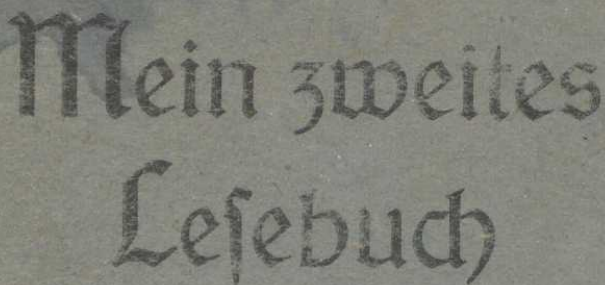 Mein zweites
Leſebuch